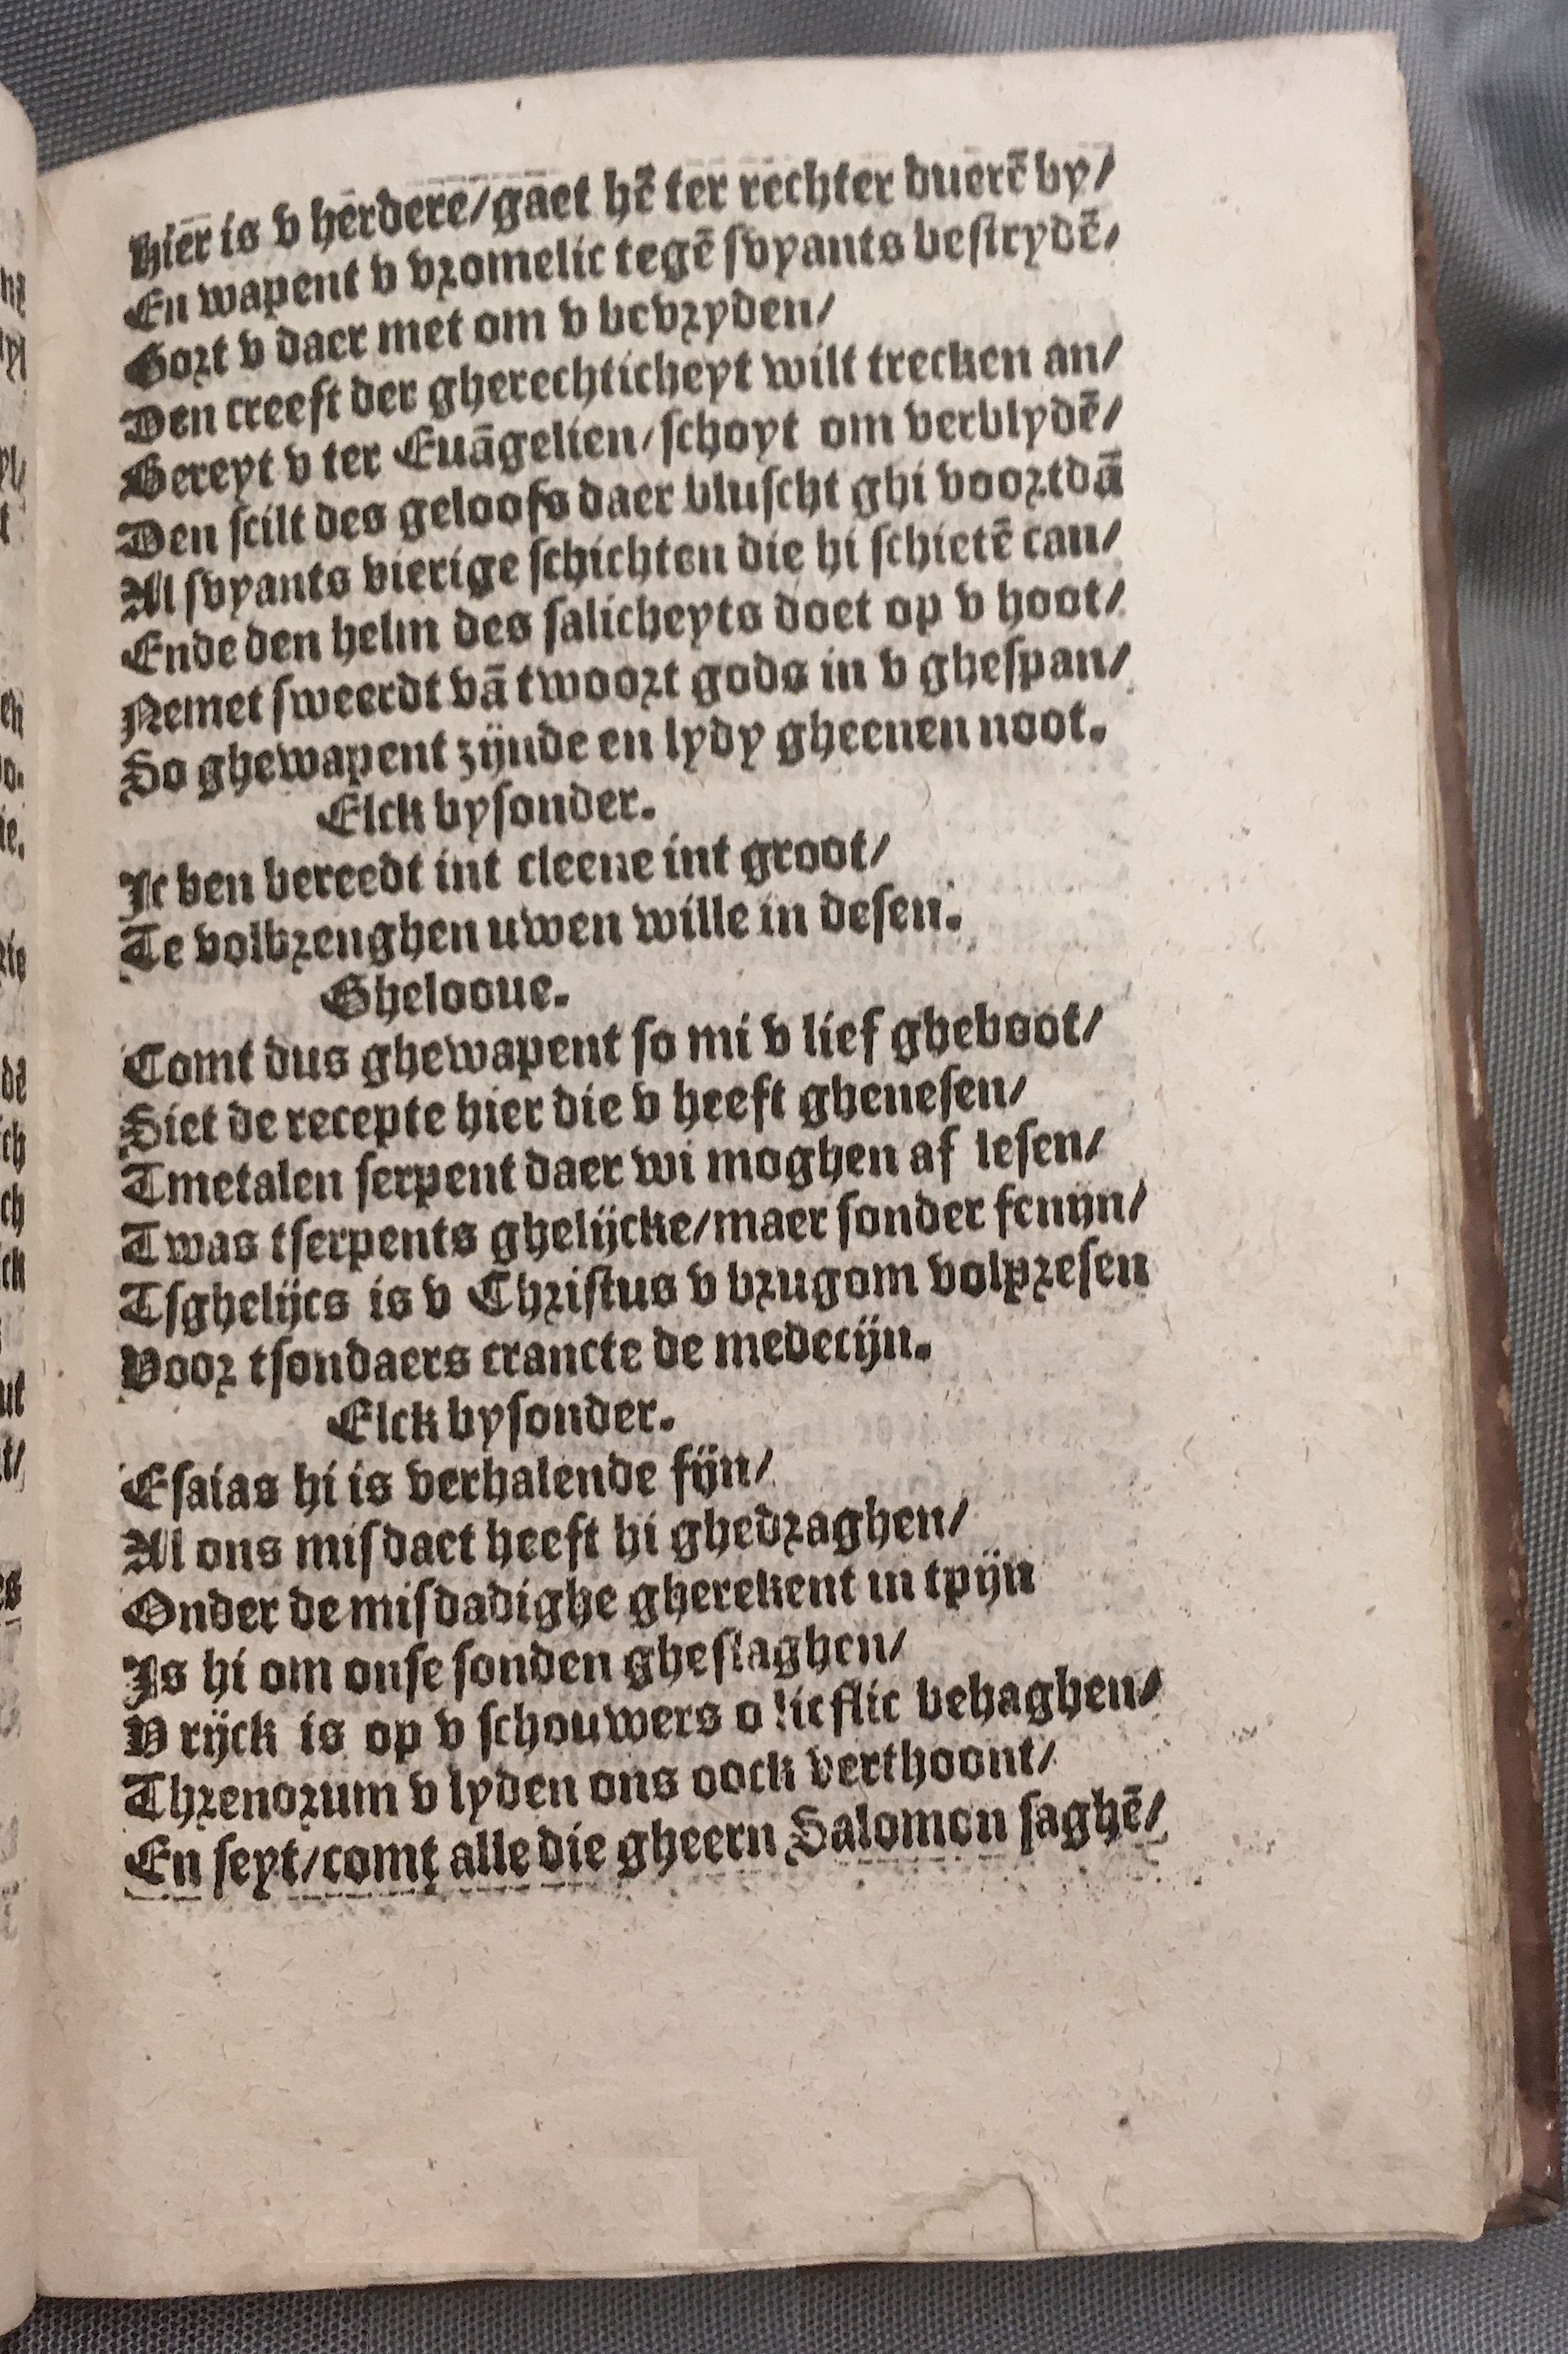 Hier is v herdere/gaet hē ter rechter duerē by/
En wapent v vromelic tegē svyants bestrydē/
Gort v daer met om v bevryden/
Den creeft der gherechticheyt wilt trecken an/
Bereyt v ter Euāgelien/schoyt om verblydē/
Den scilt des geloofs daer bluscht ghi voortdā
Al svyants vierige schichten die hi schietē can/
Ende den helm des salicheyts doet op v hoot/
Nemet sweerdt vā twoort gods in v ghespan/
So ghewapent zijnde en lydy gheenen noot.
Elck bysonder.
Ic ben bereedt int cleene int groot/
Te volbrenghen uwen wille in desen.
Ghelooue.
Comt dus ghewapent so mi v lief gheboot/
Siet de recepte hier die v heeft ghenesen/
Tmetalen serpent daer wi moghen af lesen/
Twas tserpents ghelijcke/maer sonder fenijn/
Tsghelijcs is v Christus v brugom volpresen
Voor tsondaers crancte de medecijn.
Elck bysonder.
Esaias hi is verhalende fijn/
Al ons misdaet heeft hi ghedraghen/
Onder de misdadighe gherekent in tpijn
Is hi om onse sonden gheslaghen/
V rijck is op v schouwers o lieflic behaghen/
Threnorum v lyden ons oock verthoont/
En seyt/comt alle die gheern Salomon saghē/